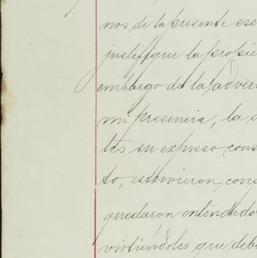 nos de la presente esc
justifique la propie
embargo de la adver
mi presencia, la
su expreso cons
to, estuvieron, con
quedaron entendido
virtiéndoles que deb